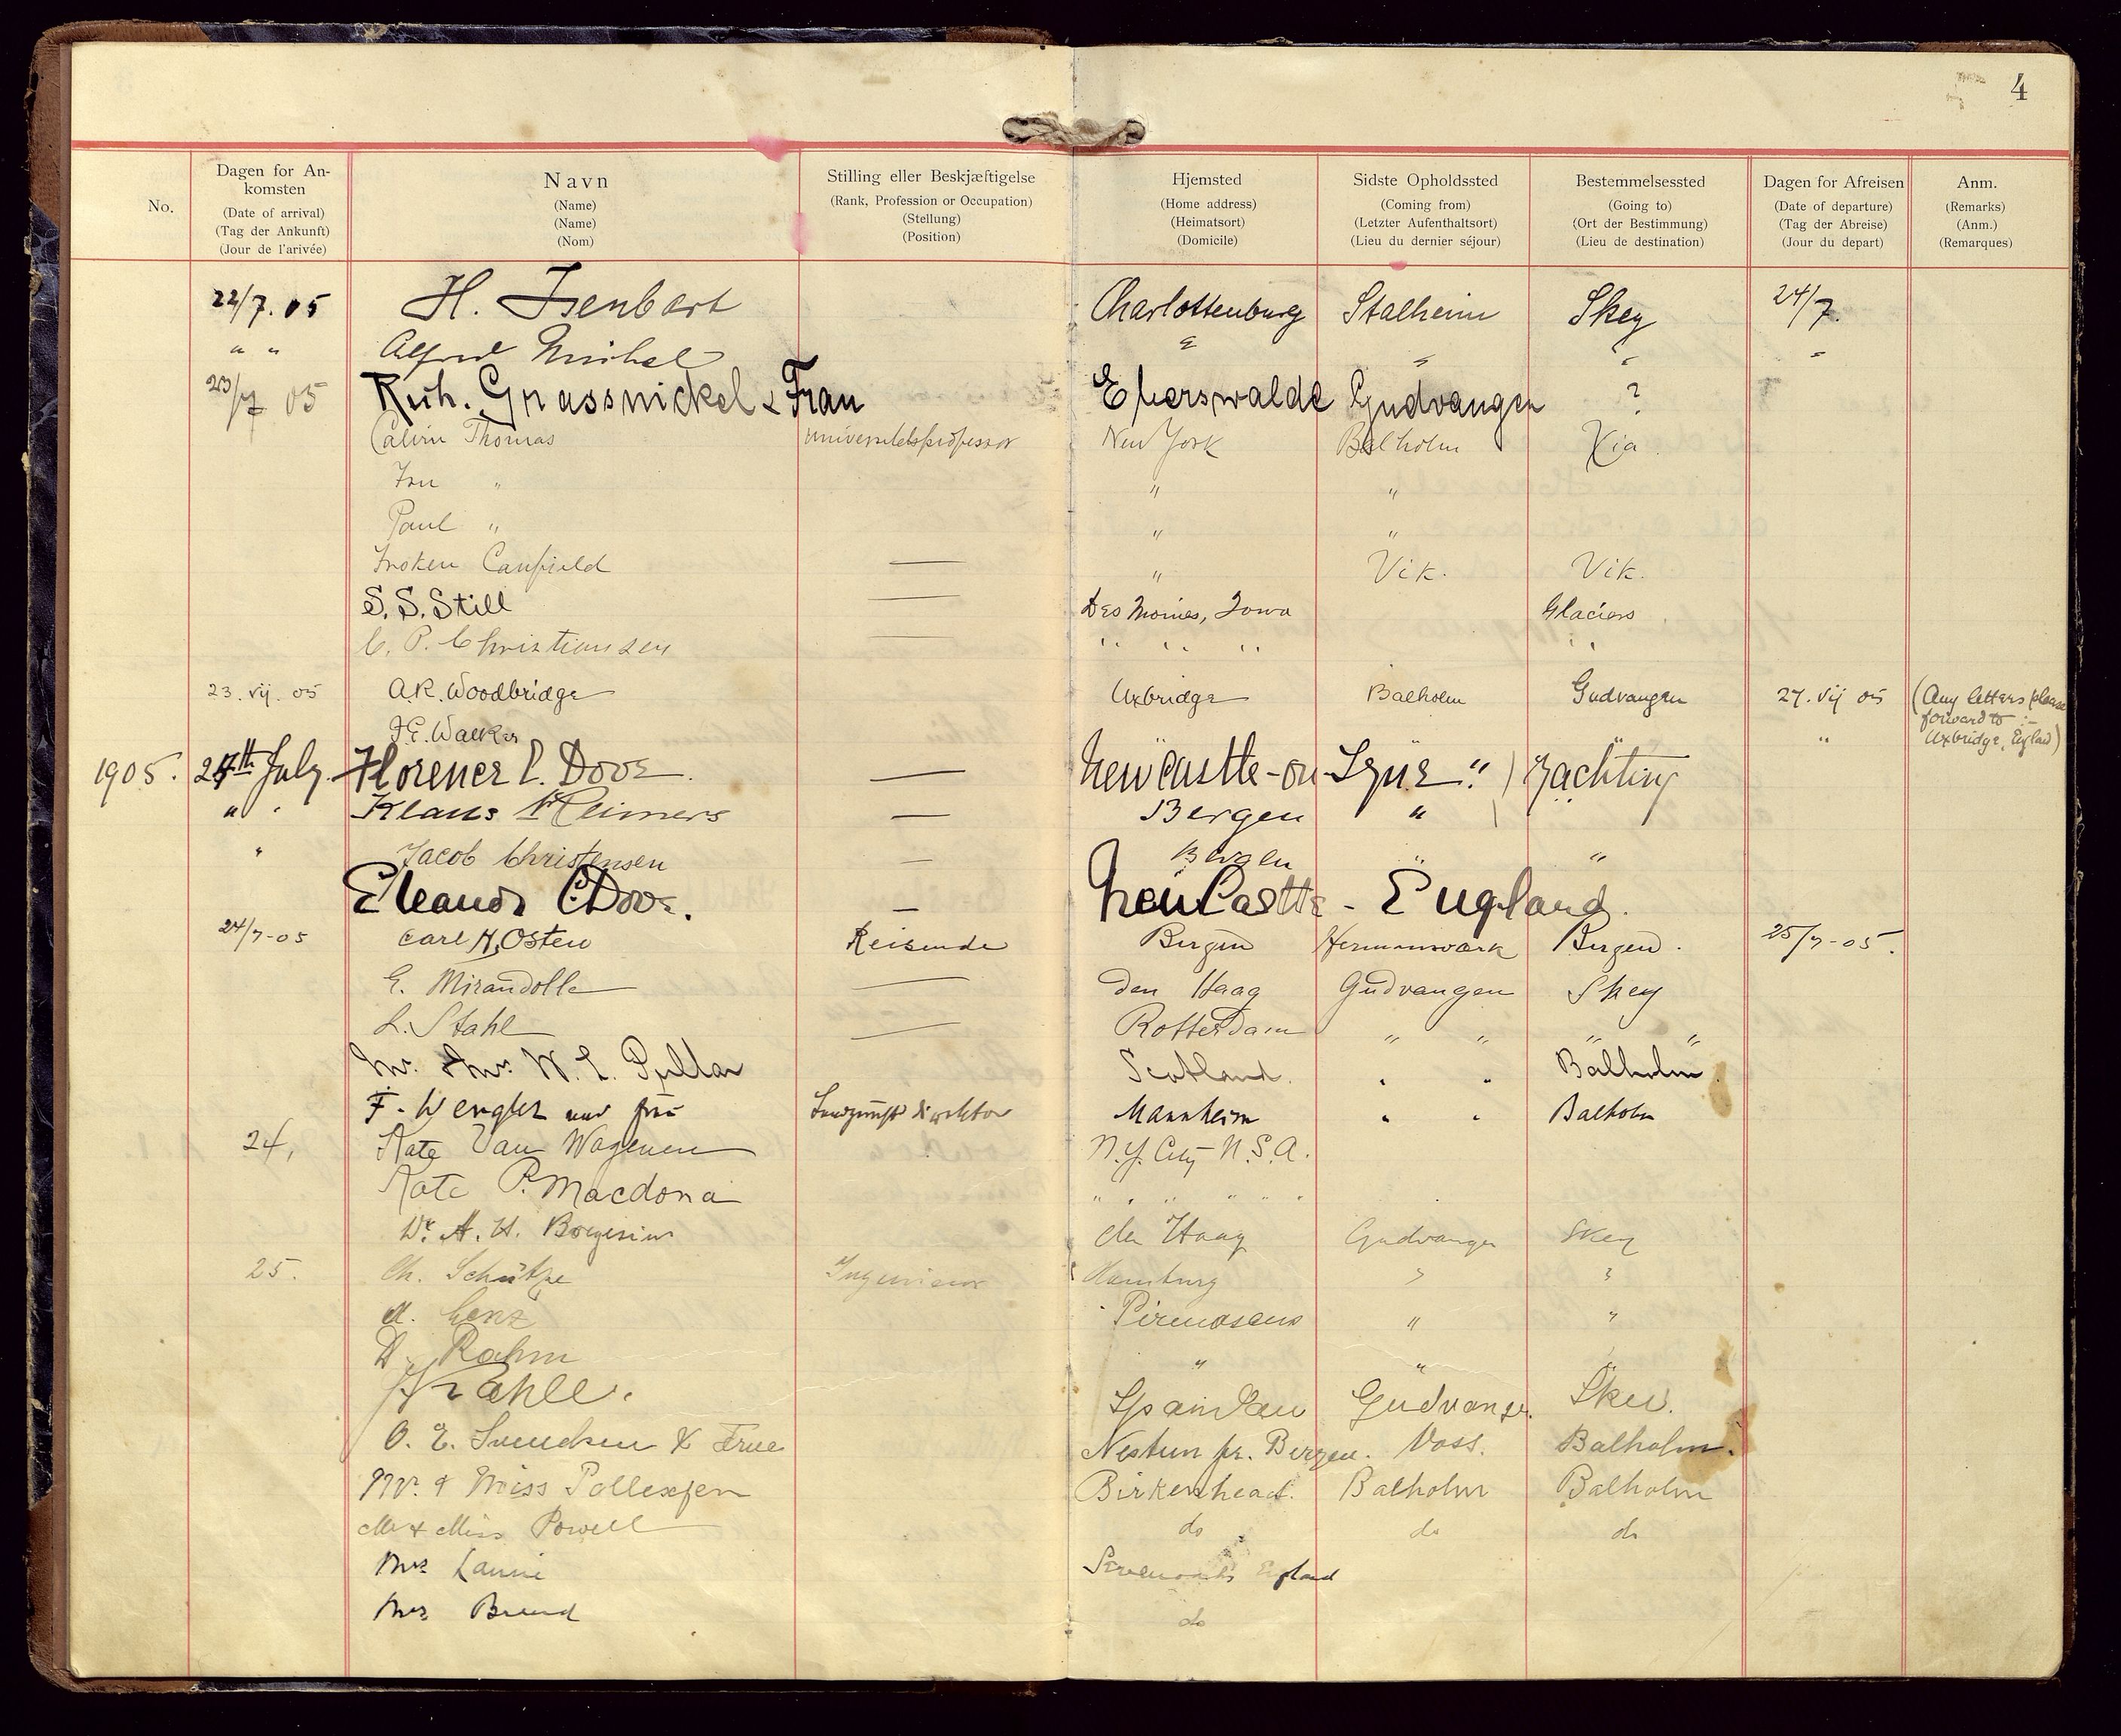 4
No.
Dagen for An-
komsten
(Date of arrival)
(Tag der Ankunft)
(Jour de l'arivée)
Navn
(Name)
(Name)
(Nom)
Stilling eller Beskjæftigelse
(Rank, Profession or Occupation)
(Stellung)
(Position)
Hjemsted
(Home address)
(Heimatsort)
(Domicile)
Sidste Opholdssted
(Coming from)
(Letzter Aufenthaltsort)
(Lieu du dernier séjour)
Bestemmelsessted
(Going to)
(Ort der Bestimmung)
(Lieu de destination)
Dagen for Afreisen
(Date of departure)
(Tag der Abreise)
(Jour du depart)
Anm.
(Remarks)
(Anm.)
(Remarques)
22/7. 05 H. Isenbart Charlottenburg Stalheim Skey 24/7.
" " Alfred Michel " " " "
23/7 05 Rich. Grassnickel & Frau Eberswalde Gudvangen ?
Calvin Thomas Universitetsprofessor New York Balholm
Fru " " "
Paul " " "
Froken Canfield — " Vik. Vik.
S. S. Still — Des Moines, Iowa Glaciers
C. P. Christiansen — " " " "
23. vij. 05 A.R. Woodbridge Uxbridge Balholm Gudvangen 27. vij 05 (Any letters please
forward to :-
Uxbridge, England)
F.E. Walker "
1905. 24th July. Florence C. Dove. — New Castle-on-Tyne " ) Yachting
" " Klaus Reimers — Bergen "
" Jacob Christensen — Bergen " "
Eleanor C. Dove. — New Castle - England.
24/7-05 Carl H. Osten Reisende Bergen Hermansværk Bergen. 25/7-05.
E. Mirandolle — Den Haag Gudvangen Skey
L. Stahl — Rotterdam " " " "
Mr. & Mrs. W. L. Pullar Scotland. " " Balholm
F. Wengler und Frau Mannheim " " Balholm
24, Kate Van Wagenen N.Y. City U.S.A.
Kate P. Macdona " " " " " "
A. H. Borgesius den Haag Gudvangen Skey
25. Ch. Schütze Ingenieur Hamburg " "
A. Lenz Pirmasens " "
Rahm " "
Spandau Gudvangen Skei.
O. E. Svendsen & Frue Nestun pr. Bergen. Voss. Balholm.
Mr. & Miss Pollexfen Birkenhead. Balholm Balholm
Mr & Miss Powell do do do
Mrs Sevenoaks England
Mrs do